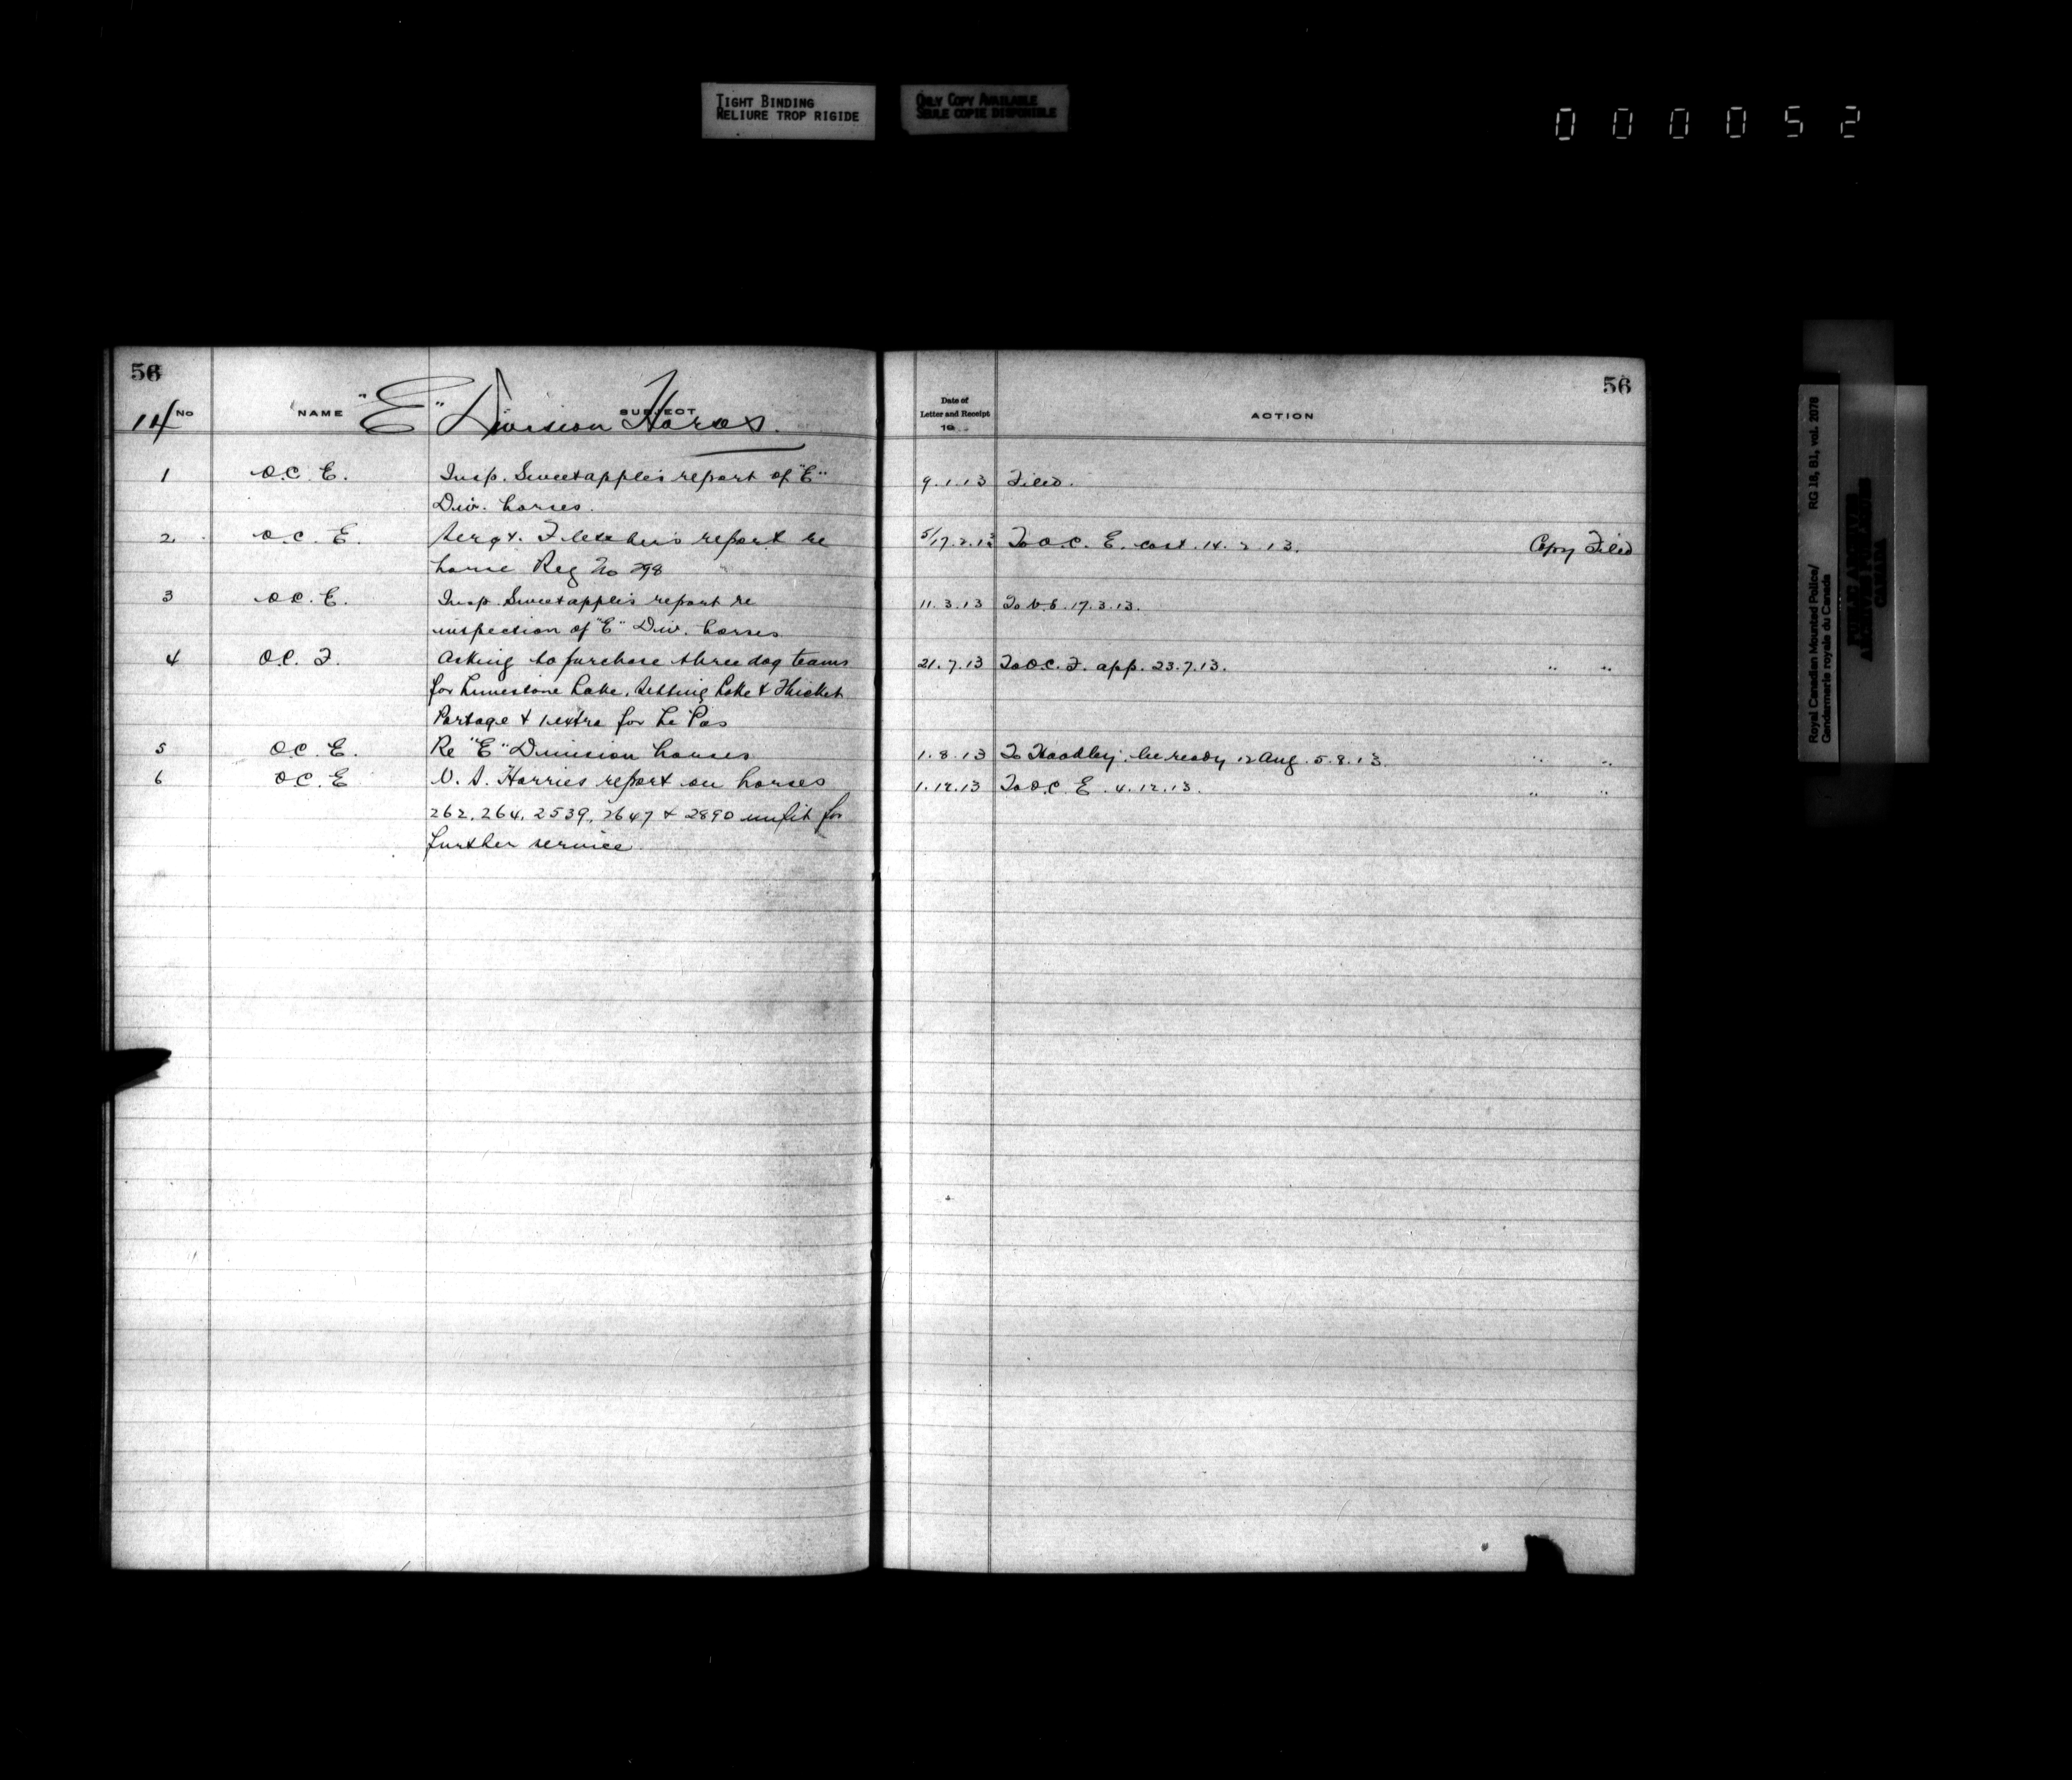 TIGHT BINDING
RELIURE TROP RIGIDE
ONLY COPY AVAILABLE
SEULE COPIE DISPONIBLE
000052
56
14 No NAME SUBJECT
"E" Division Horses.
1 O.C. E. Insp. Sweetapple's report of "E"
Div. horses.
2. O.C. E. Sergt. Fletcher's report re
horse Reg No 298
3 O.C. E. Insp. Sweetapple's report re
inspection of "E" Div. horses.
4 O.C. F. Asking to purchase three dog teams
for Limestone Lake, Setting Lake & Thicket
Portage & 1 extra for Le Pas
5 O.C. E. Re "E" Division horses
6 O.C. E V. S. Harries report on horses
262, 264, 2539, 2647 & 2890 unfit for
further service.
56
Date of
Letter and Receipt
19
ACTION
9.1.13 Filed.
5/17.2.13 To O.C. E. cast. 14.2.13. Copy Filed
11.3.13 To 17.3.13.
21.7.13 To O.C. F. app. 23.7.13. " "
1.8.13 To be ready 12 Aug. 5.8.13. " "
1.12.13 To O.C. E. 4.12.13. " "
Royal Canadian Mounted Police/ RG 18, B1, vol. 2078
Gendarmerie royale du Canada
PUBLIC ARCHIVES
ARCHIVES PUBLIQUES
CANADA